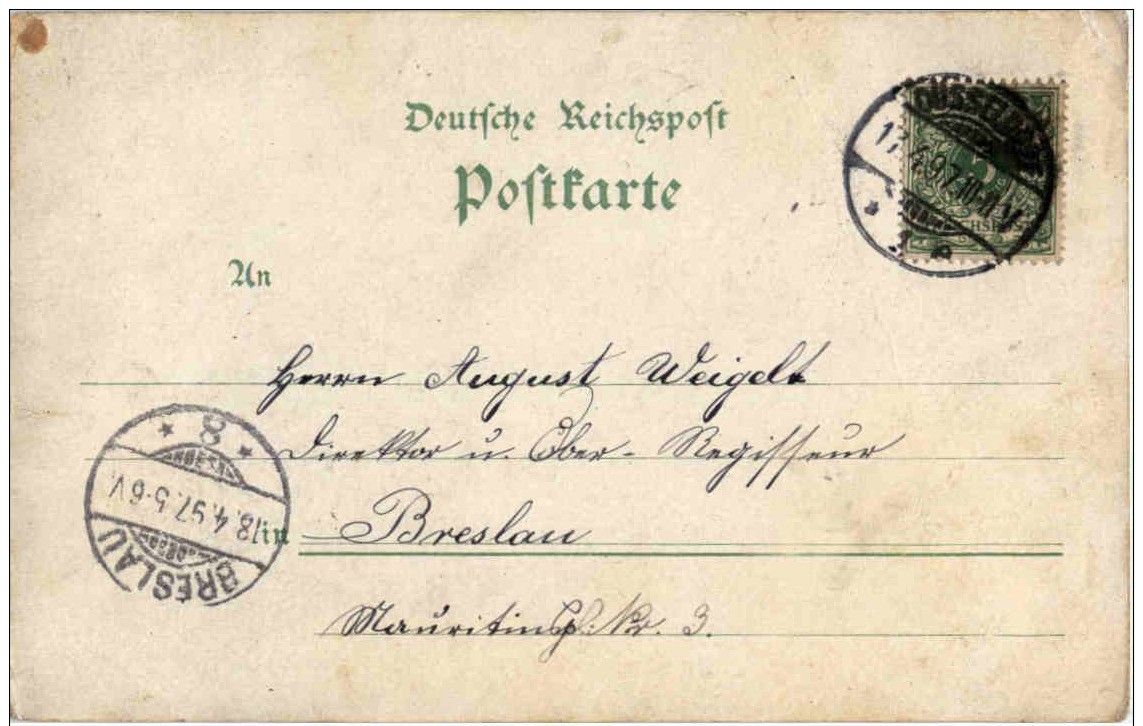 Deutsche Reichspost
Postkarte
DÜSSELDORF
17.4.97.10-11V
1
An
Herrn August Weigelt
Direktor u. Ober-Regisseur
in Breslau
Mauritiuspl: Nr. 3.
BRESLAU
18.4.97.5-6V.
8